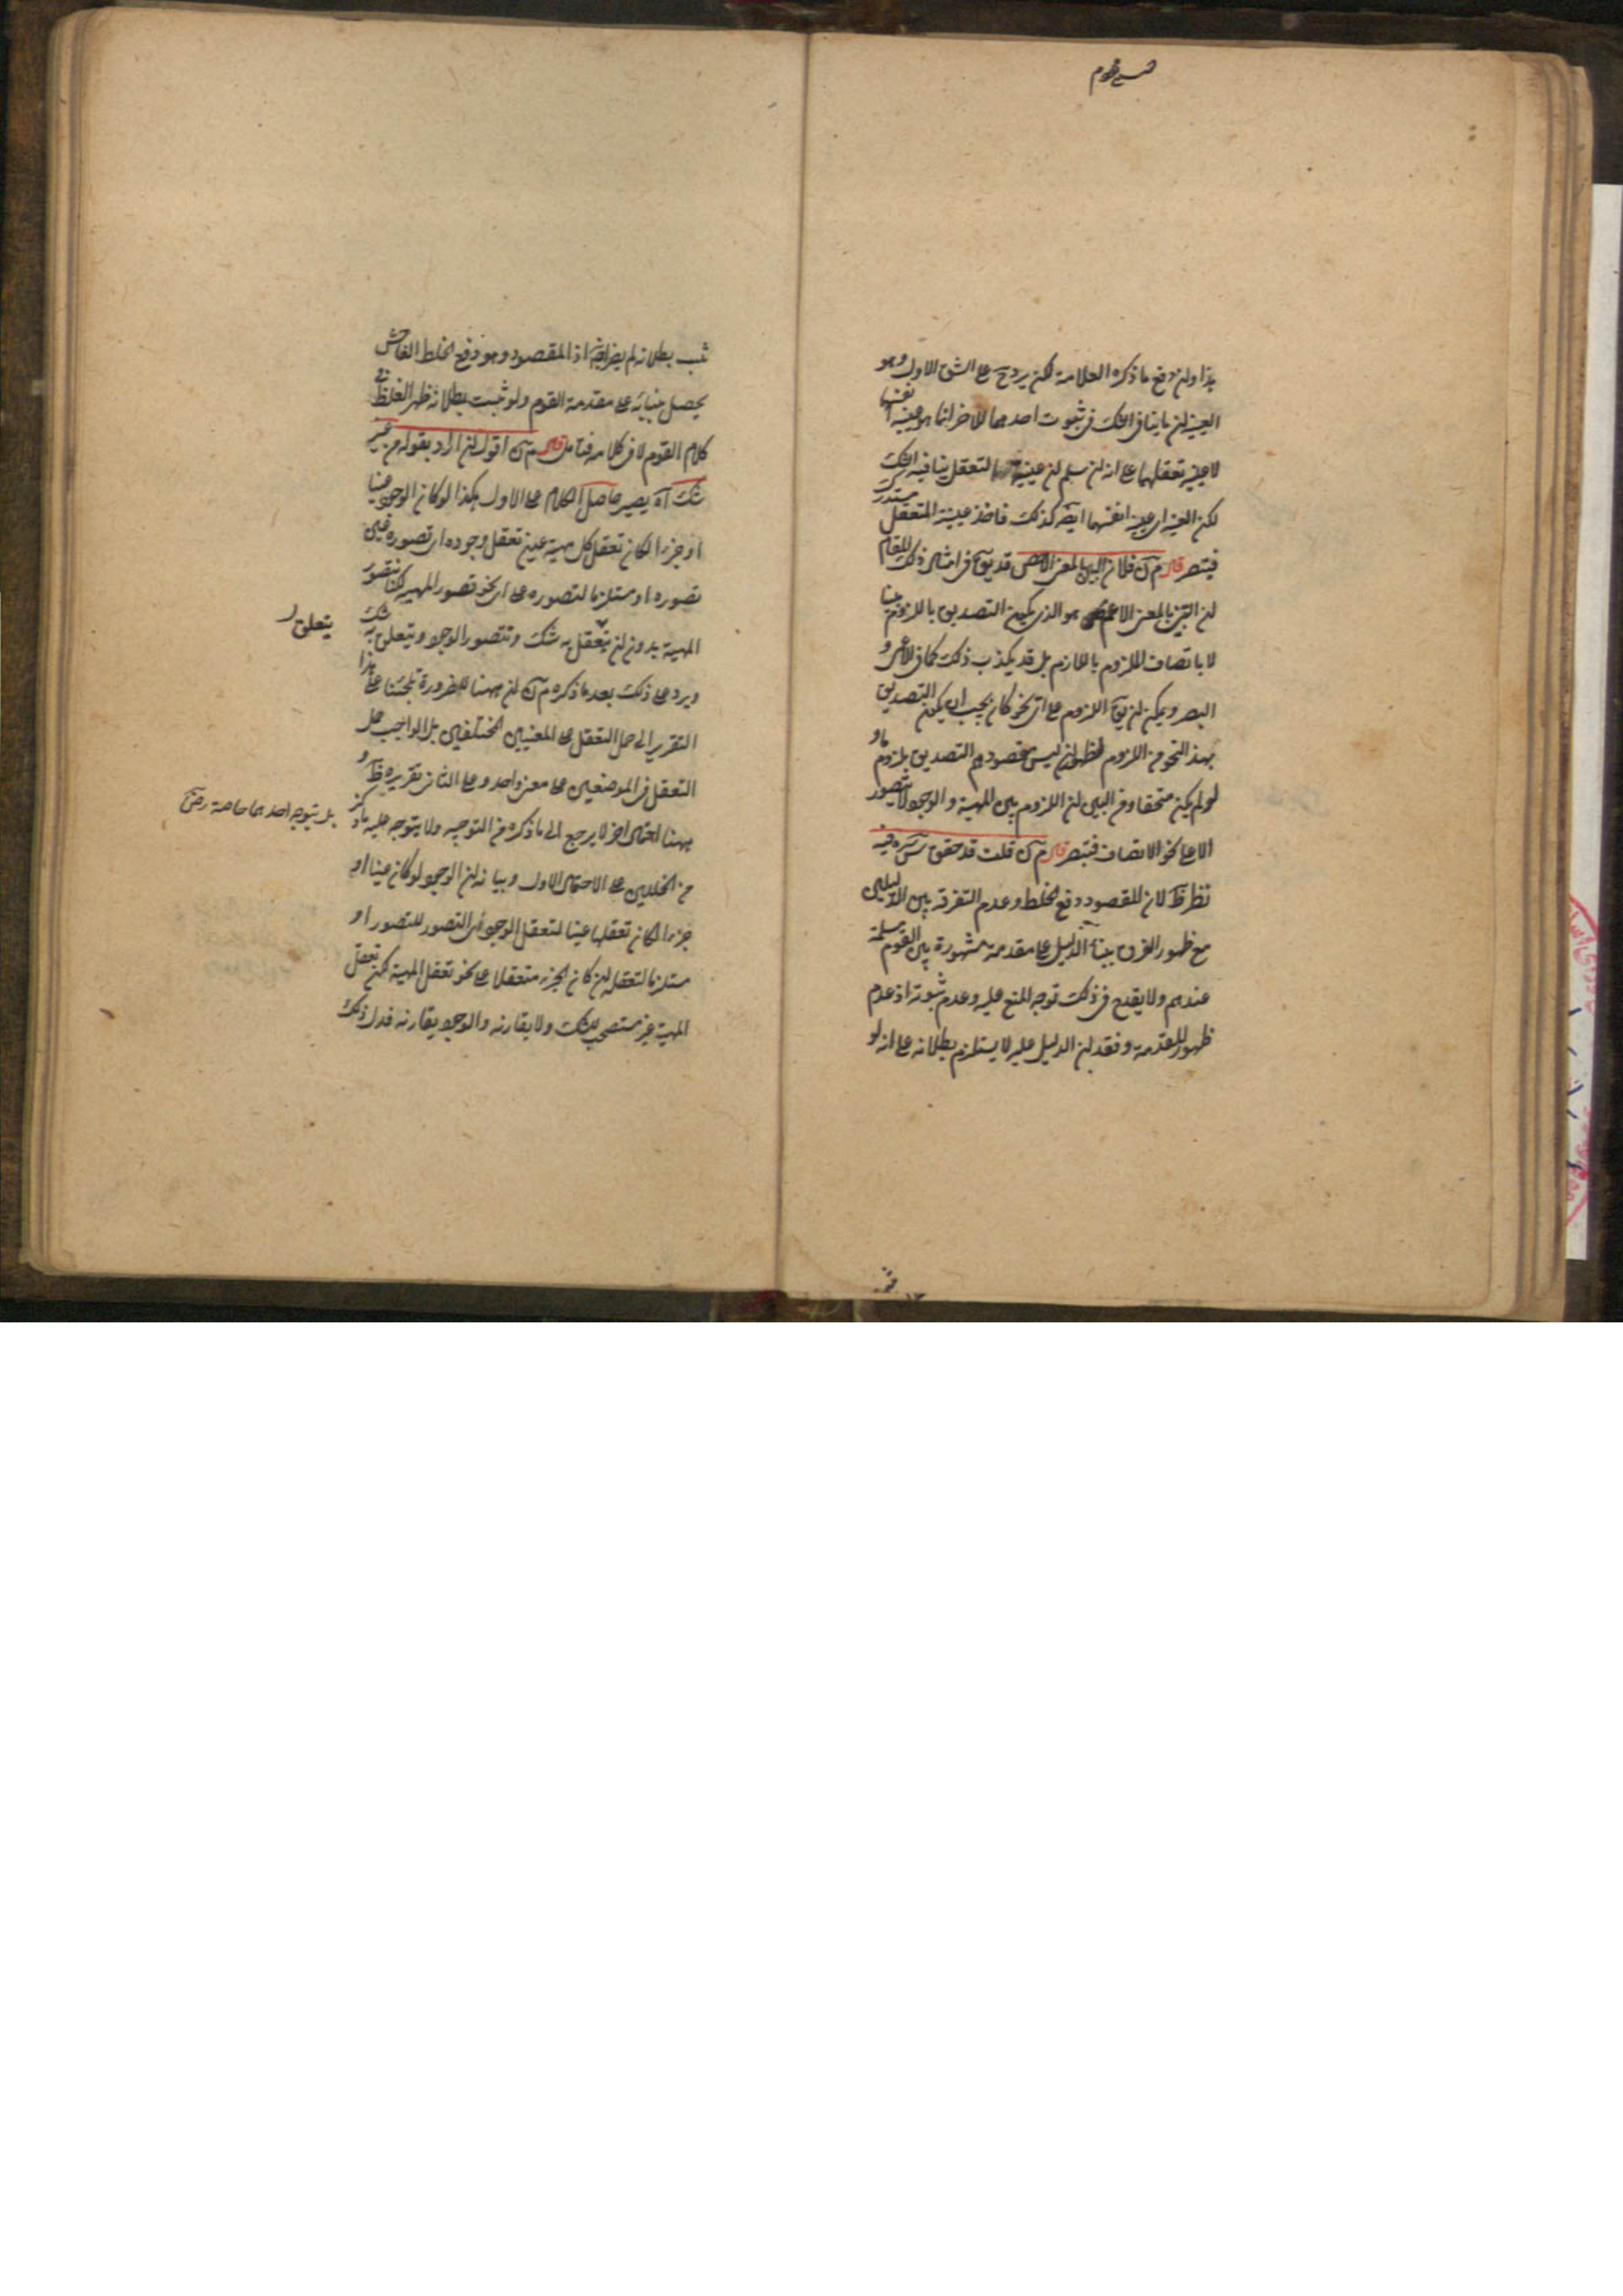 هذا وان دفع ما ذكره العلامة لكن يرد ح على الشق الاول وهو
العينية ان ما ينافى الشك فى ثبوت احدهما للاخر انما هو عينية انفسهما
لا عينية تعقلهما على انه لن سلم ان عينية التعقل ينافيه الشك
لكن العينية اى عينية انفسهما ايضا كذلك فاخذ عينية التعقل مستدرك
فتبصر قال م آن فلان البين بالمعنى الاخص قد يق فى امثال ذلك المقام
ان البين بالمعنى الاعم هو الذى يكون التصديق باللزوم بينا
لا باتصاف الملزوم باللازم بل قد يكذب ذلك كما فى الاعمى و
البصر ويمكن ان يق اللزوم على اى نحو كان يجب ان يكون التصديق
بهذا النحو من اللزوم فظهر ان ليس مقصودهم التصديق بلزوم ما و
لو لم يكن متحققا ومن البين ان اللزوم بين المهية والوجود لا يتصور
الا على نحو الاتصاف فتبصر قال م آن قلت قد حقق س سره فيه
نظر ظ لان المقصود دفع الخلط وعدم التفرقة بين الدليلين
مع ظهور الفرق ببناء الدليل على مقدمة مشهورة بين القوم مسلمة
عندهم ولا يقدح فى ذلك توجه المنع عليه وعدم ثبوته اذ عدم
ظهور المقدمة وفقدان الدليل عليه لا يستلزم بطلانه على انه لو
ثبت بطلانه لم يضر ايضا اذ المقصود وهو دفع الخلط الفاحش
يحصل ببنائه على مقدمة القوم ولو ثبت بطلانه ظهر الغلط فى
كلام القوم لا فى كلامه فتامل قال م آن اقول ان اراد بقوله من غير
شك آه يصير حاصل الكلام على الاول هكذا لو كان الوجود عينا
او جزءا لكان تعقل كل مهية عين تعقل وجوده اى تصوره عين
تصوره او مستلزما لتصوره على اى نحو تصور المهية لكنا نتصور
المهية بدون ان يتعقل به شك ونتصور الوجود ويتعلق به شك
يتعلق
ويرد على ذلك بعد ما ذكره م آن ان ههنا للضرورة تلجئنا على هذا
التقرير الى حمل التعقل على المعنيين المختلفين بل الواجب حمل
التعقل فى الموضعين على معنى واحد وعلى الثانى تقريره ظ و
ههنا احتمال اخر لا يرجع الى ما ذكره من التوجيه ولا يتوجه عليه ما ذكر
بل يتوجه احدهما خاصة
من الخللين على الاحتمال الاول وبيانه ان الوجود لو كان عينا او
جزءا لكان تعقلها عينا لتعقل الوجود اى التصور للتصور او
مستلزما لتعقله ان كان الجزء متعقلا على نحو تعقل المهية لكن تعقل
المهية غير مستصحب للشك ولا يقارنه والوجود يقارنه فدل ذلك